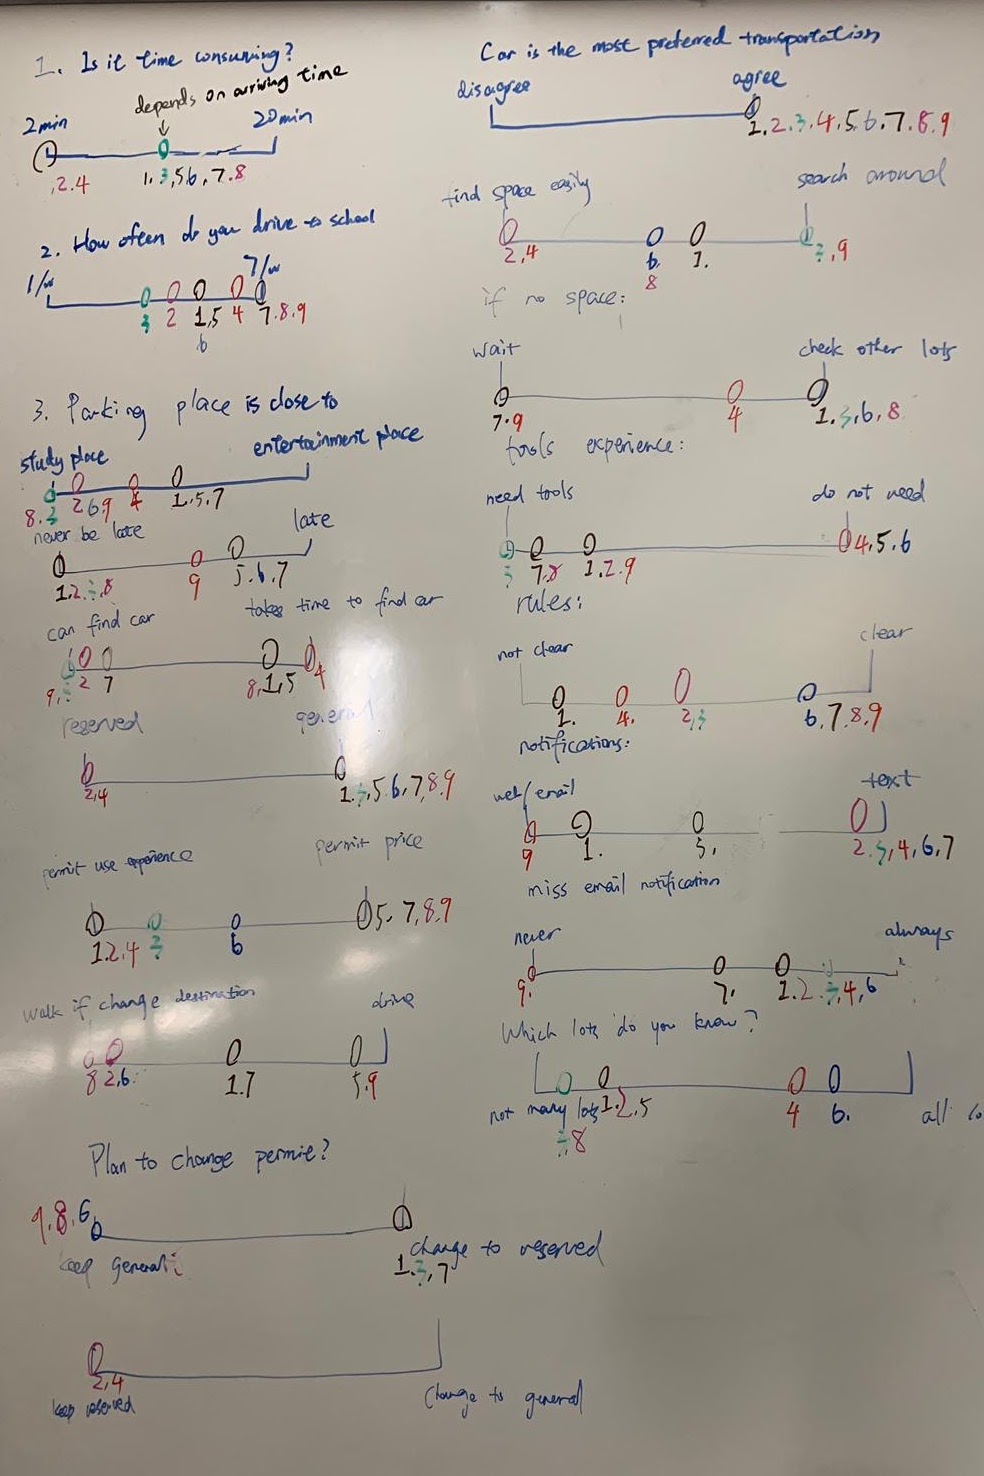 1. Is it time consuming?
depends on arriving time
2min
20min
,2.4
1.3,56,7.8
2. How ofeen do you drive to school
1/w
7/w
3
2
1,5
4
7.8.9
6
3. Parking place is close to
study place
entertainment place
8.3
269
4
1.5.7
never be late
late
1.2.3.8
9
5.6.7
can find car
takes time to find car
9,3
2
7
8,1,5
4
reserved
general
2,4
1.3,5.6,7,8.9
permit use experience
permit price
1.2.4
3
6
5.7,8.9
walk if change destination
drive
8
2,6.
1.7
5.9
Plan to change permit?
9.8.6
keep general
change to reserved
1.3,7
2,4
keep reserved
Change to general
Car is the most preferred transportation
disagree
agree
1.2.3.4.5.6.7.8.9
find space easily
search around
2,4
6.
1.
3,9
8
if no space:
wait
check other lots
7.9
4
1.3,6,8
tools experience:
need tools
do not need
3
7.8
1.2.9
4.5.6
rules:
not clear
clear
1.
4.
2,3
6,7.8.9
notifications:
web/email
text
9
1.
5.
2.3,4,6,7
miss email notification
never
always
9.
7.
1.2.3,4,6
Which lots do you know?
not many lots
1.2.5
4
6.
all lo
3.8